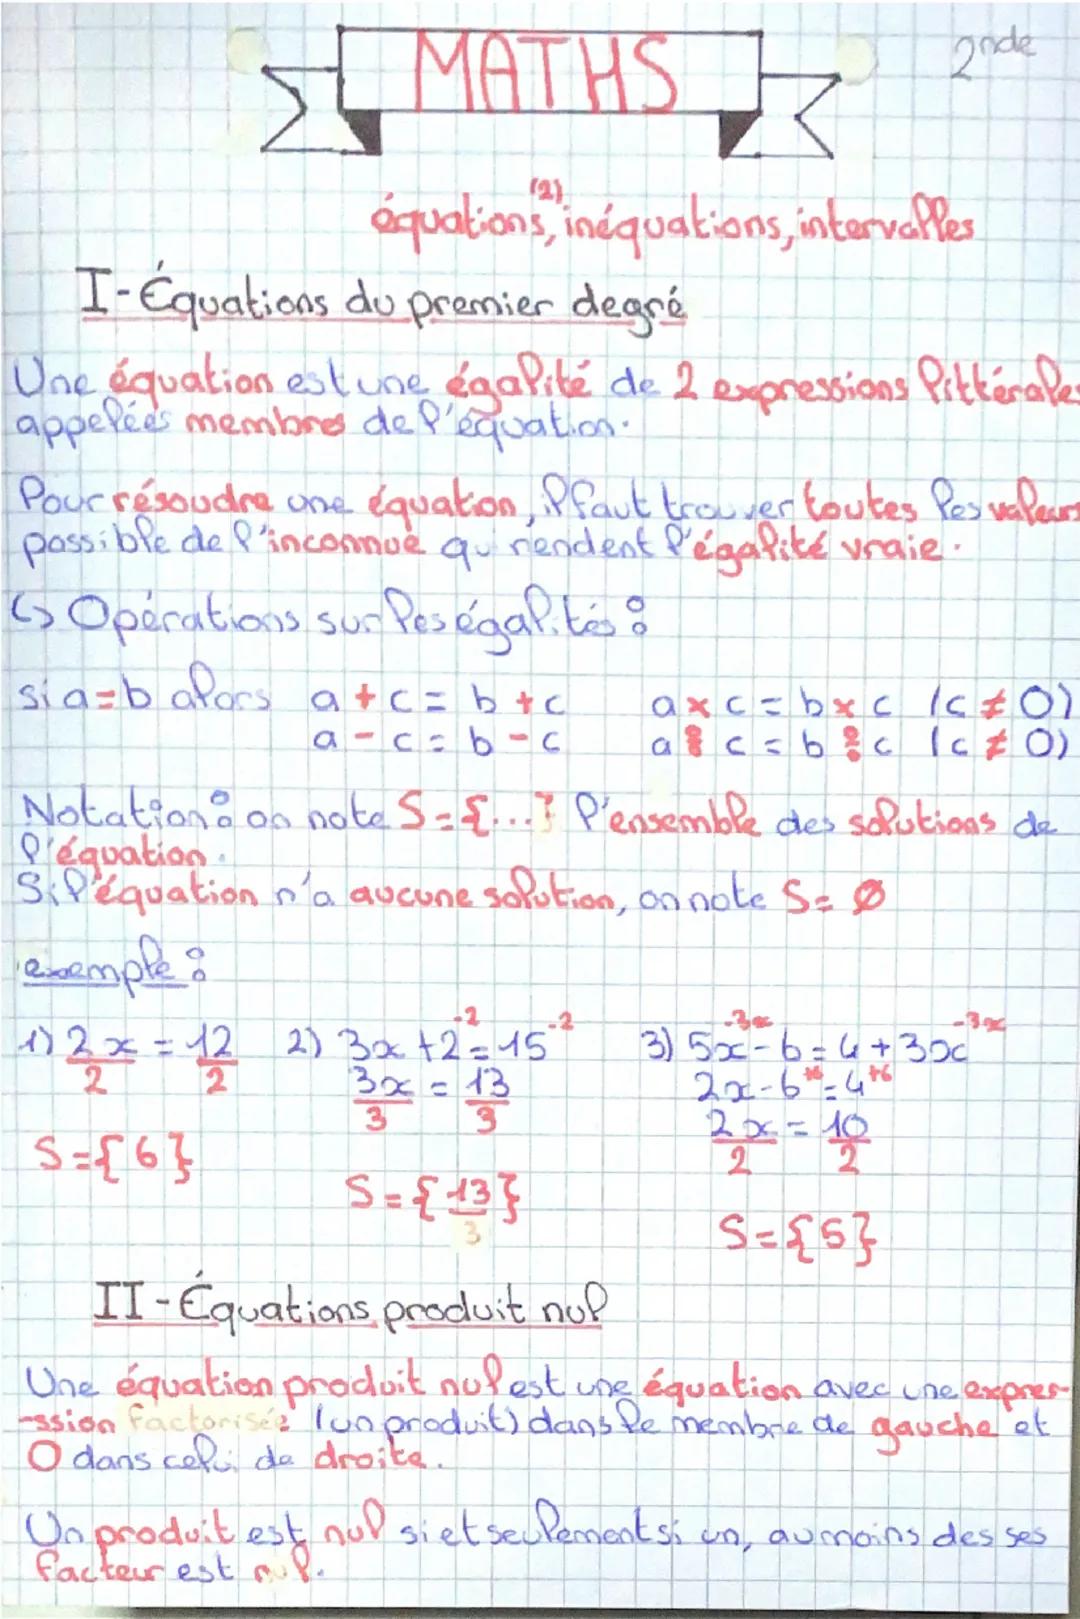 MATHS
2nde
équations (2), inéquations, intervalles
I-Équations du premier degré
Une équation est une égalité de 2 expressions littérales
appelées membres de l'équation.
Pour résoudre une équaton, il faut trouver toutes les valeurs
possible de l'inconnue qui rendent l'égalité vraie.
↳ Opérations sur les égalités :
si a=b alors a + c = b + c a × c = b × c (c ≠ 0)
a - c = b - c a : c = b : c (c ≠ 0)
Notation : on note S={...} l'ensemble des solutions de
l'équation.
Si l'équation n'a aucune solution, on note S= ∅
exemple :
1) 2x = 12 2) 3x +2 -2 = 15 -2 3) 5x -3x - 6 = 4 + 3x -3x
2 2 3x = 13 2x - 6 +6 = 4 +6
3 3 2x = 10
S={6} 2 2
S={13/3}
S={5}
II-Équations produit nul
Une équation produit nul est une équation avec une expres-
-ssion factorisée (un produit) dans le membre de gauche et
0 dans celui de droite.
Un produit est nul si et seulement si un, au moins des ses
facteur est nul.